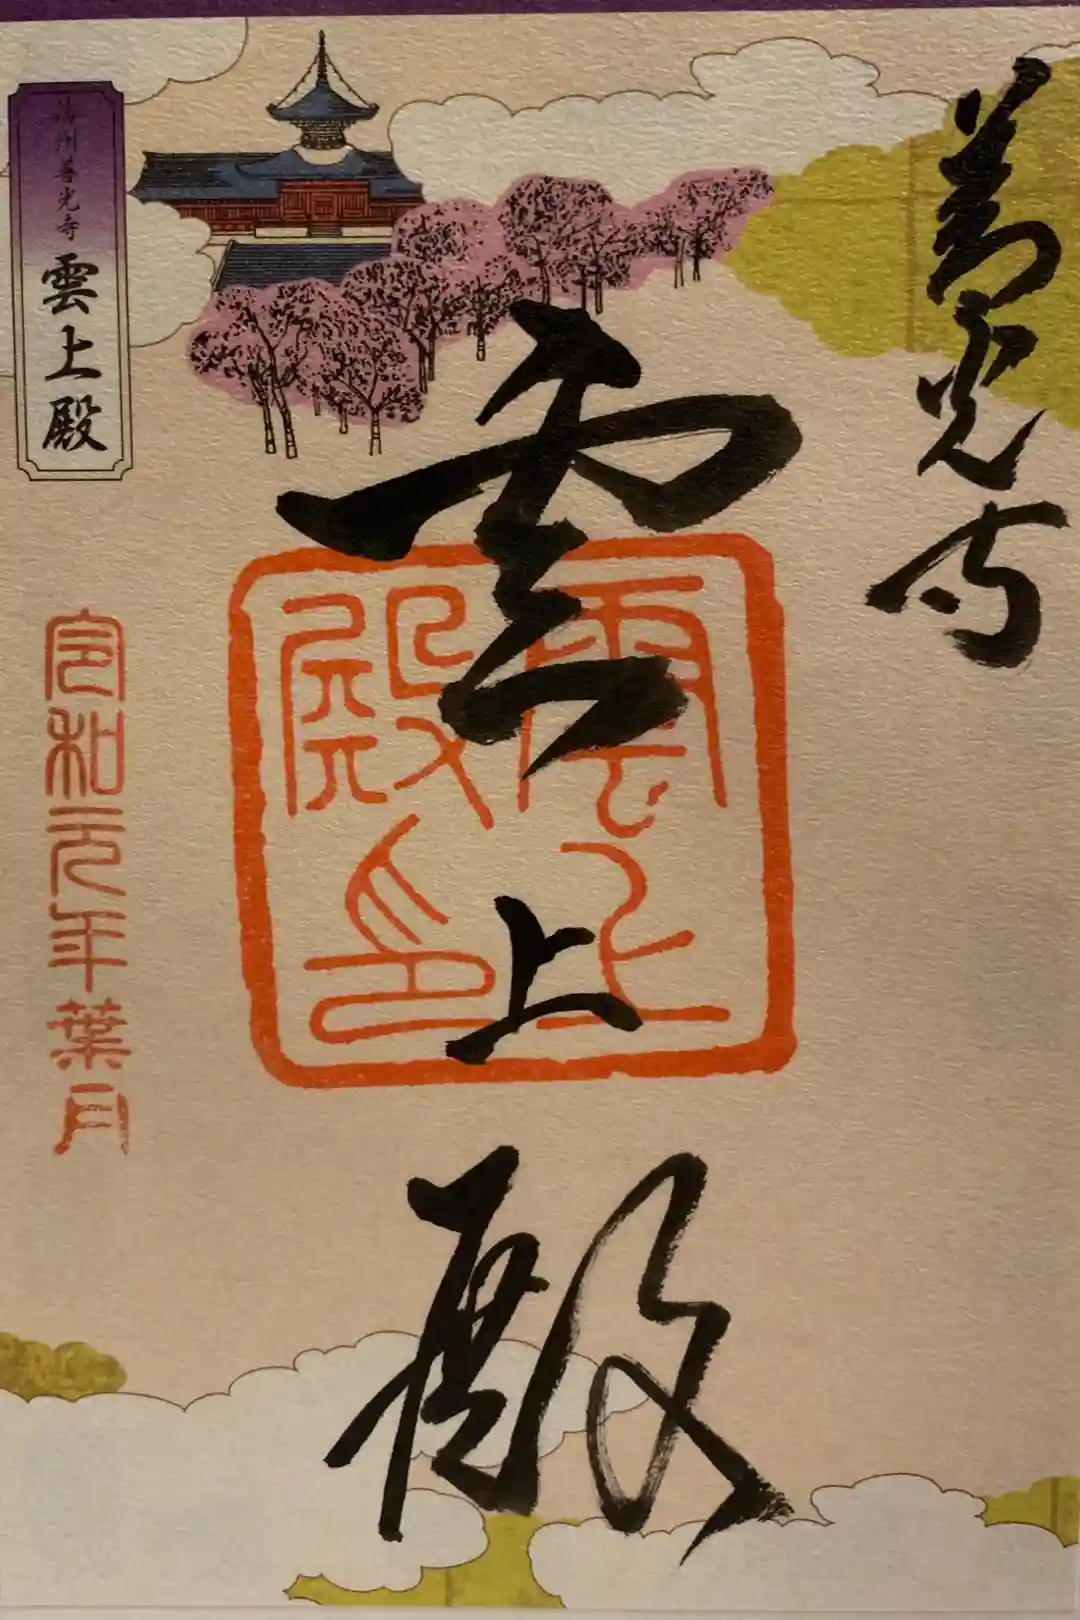 善光寺
雲上殿
雲上
殿印
信州善光寺
雲上殿
令和元年葉月